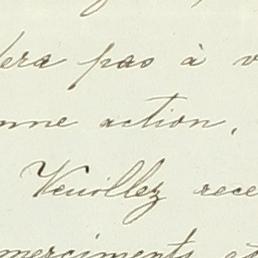 era pas à v
nne action,
Veuillez rece
merciments et